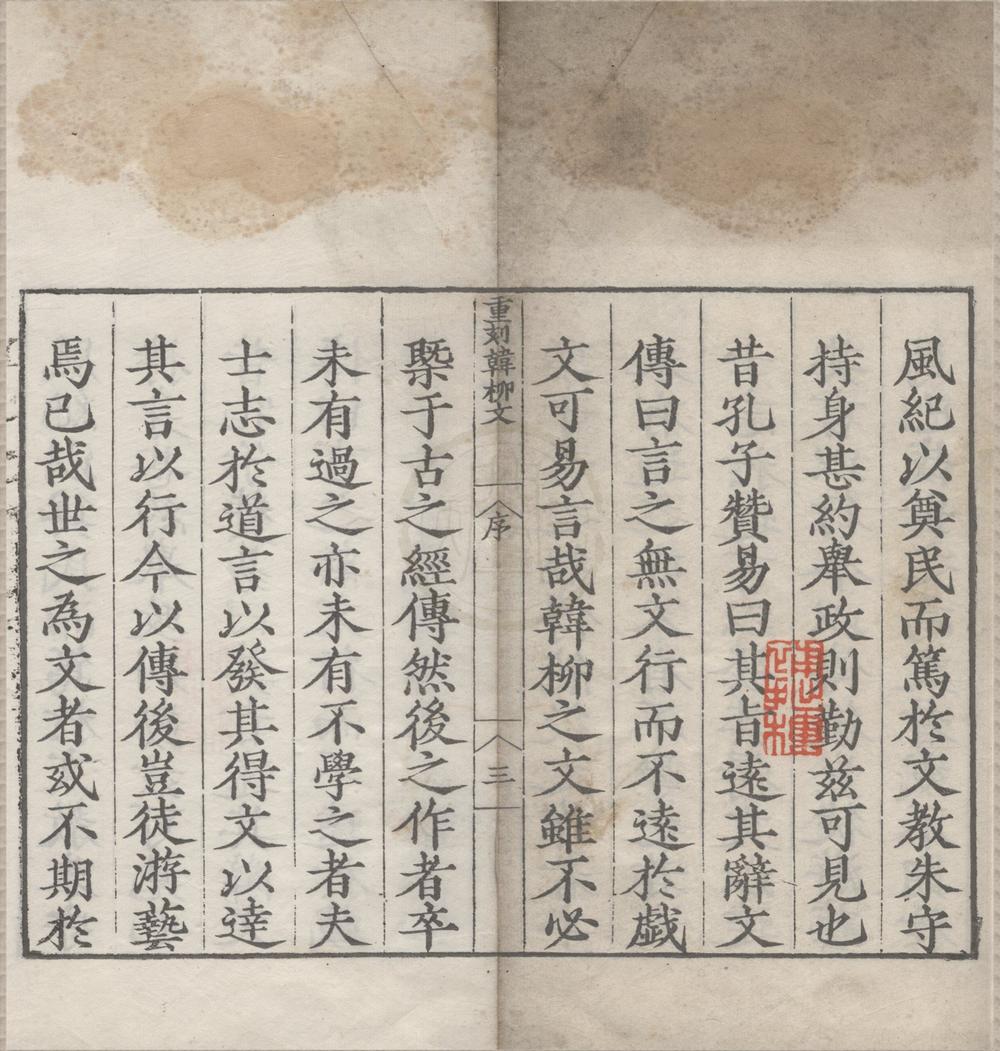 風紀以奠民而篤於文教朱守
持身甚約舉政則勤茲可見也
昔孔子贊易曰其旨遠其辭文
傳曰言之無文行而不遠於戯
文可易言哉韓柳之文雖不必
重刻韓柳文
序
三
槩于古之經傳然後之作者卒
未有過之亦未有不學之者夫
士志於道言以發其得文以達
其言以行今以傳後豈徒游藝
焉已哉世之為文者或不期於